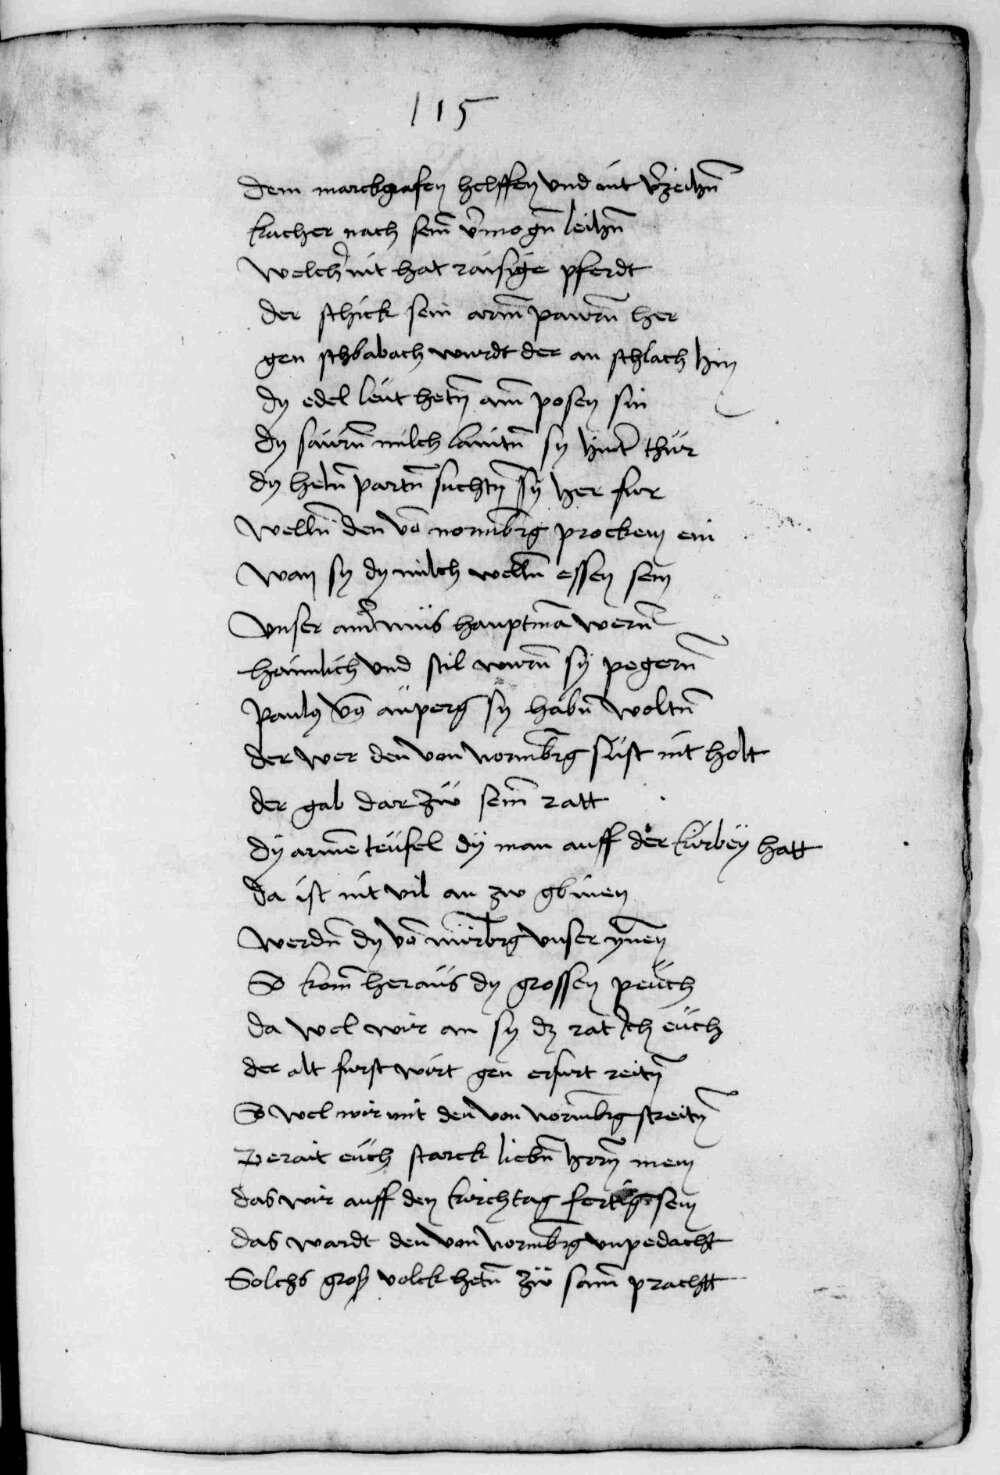 115
dem marckgrafen helffen und nit v̄zeihn̄
kacher nach sem̄ v̄mogn̄ leihn̄
Welch̄ nit hat raisige pferdt
der schick sein arm̄ pawrn̄ her
gen schbabach wurdt der an schlach hin
dy edel leut hetn̄ am̄ posen sin
dy saurn̄ milch sy hint̄ thur
dy hetn̄ partn̄ suchtn̄ sy her fur
Welln̄ den vō normb̄rg procken ein
Wan sy dy milch welln̄ essen sein
Unser mus hauptmā wern̄
haimlich und stil wurn̄ sy pegern̄
Paulus vō auperg sy habn̄ woltn̄
der wer den von normb̄rg sust nit holt
der gab dar zw sein̄ ratt
dy arme teufel dy man auff der kirbey hatt
da ist nit vil an zw gbinen
Werdn̄ dy vō nurb̄rg unser ynnen
So kom̄ heraus dy grossen peuch
da wel wir an sy dz rat ich euch
der alt furst wirt gen erfurt reitn̄
So wel wir mit den von normb̄rg streitn̄
Berait euch starck liebn̄ hern̄ mein
das wir auff den kirchtag fertig sein
das wardt den von normb̄rg unpedacht
Solchs gross volck hetn̄ zw sam̄ prachtt